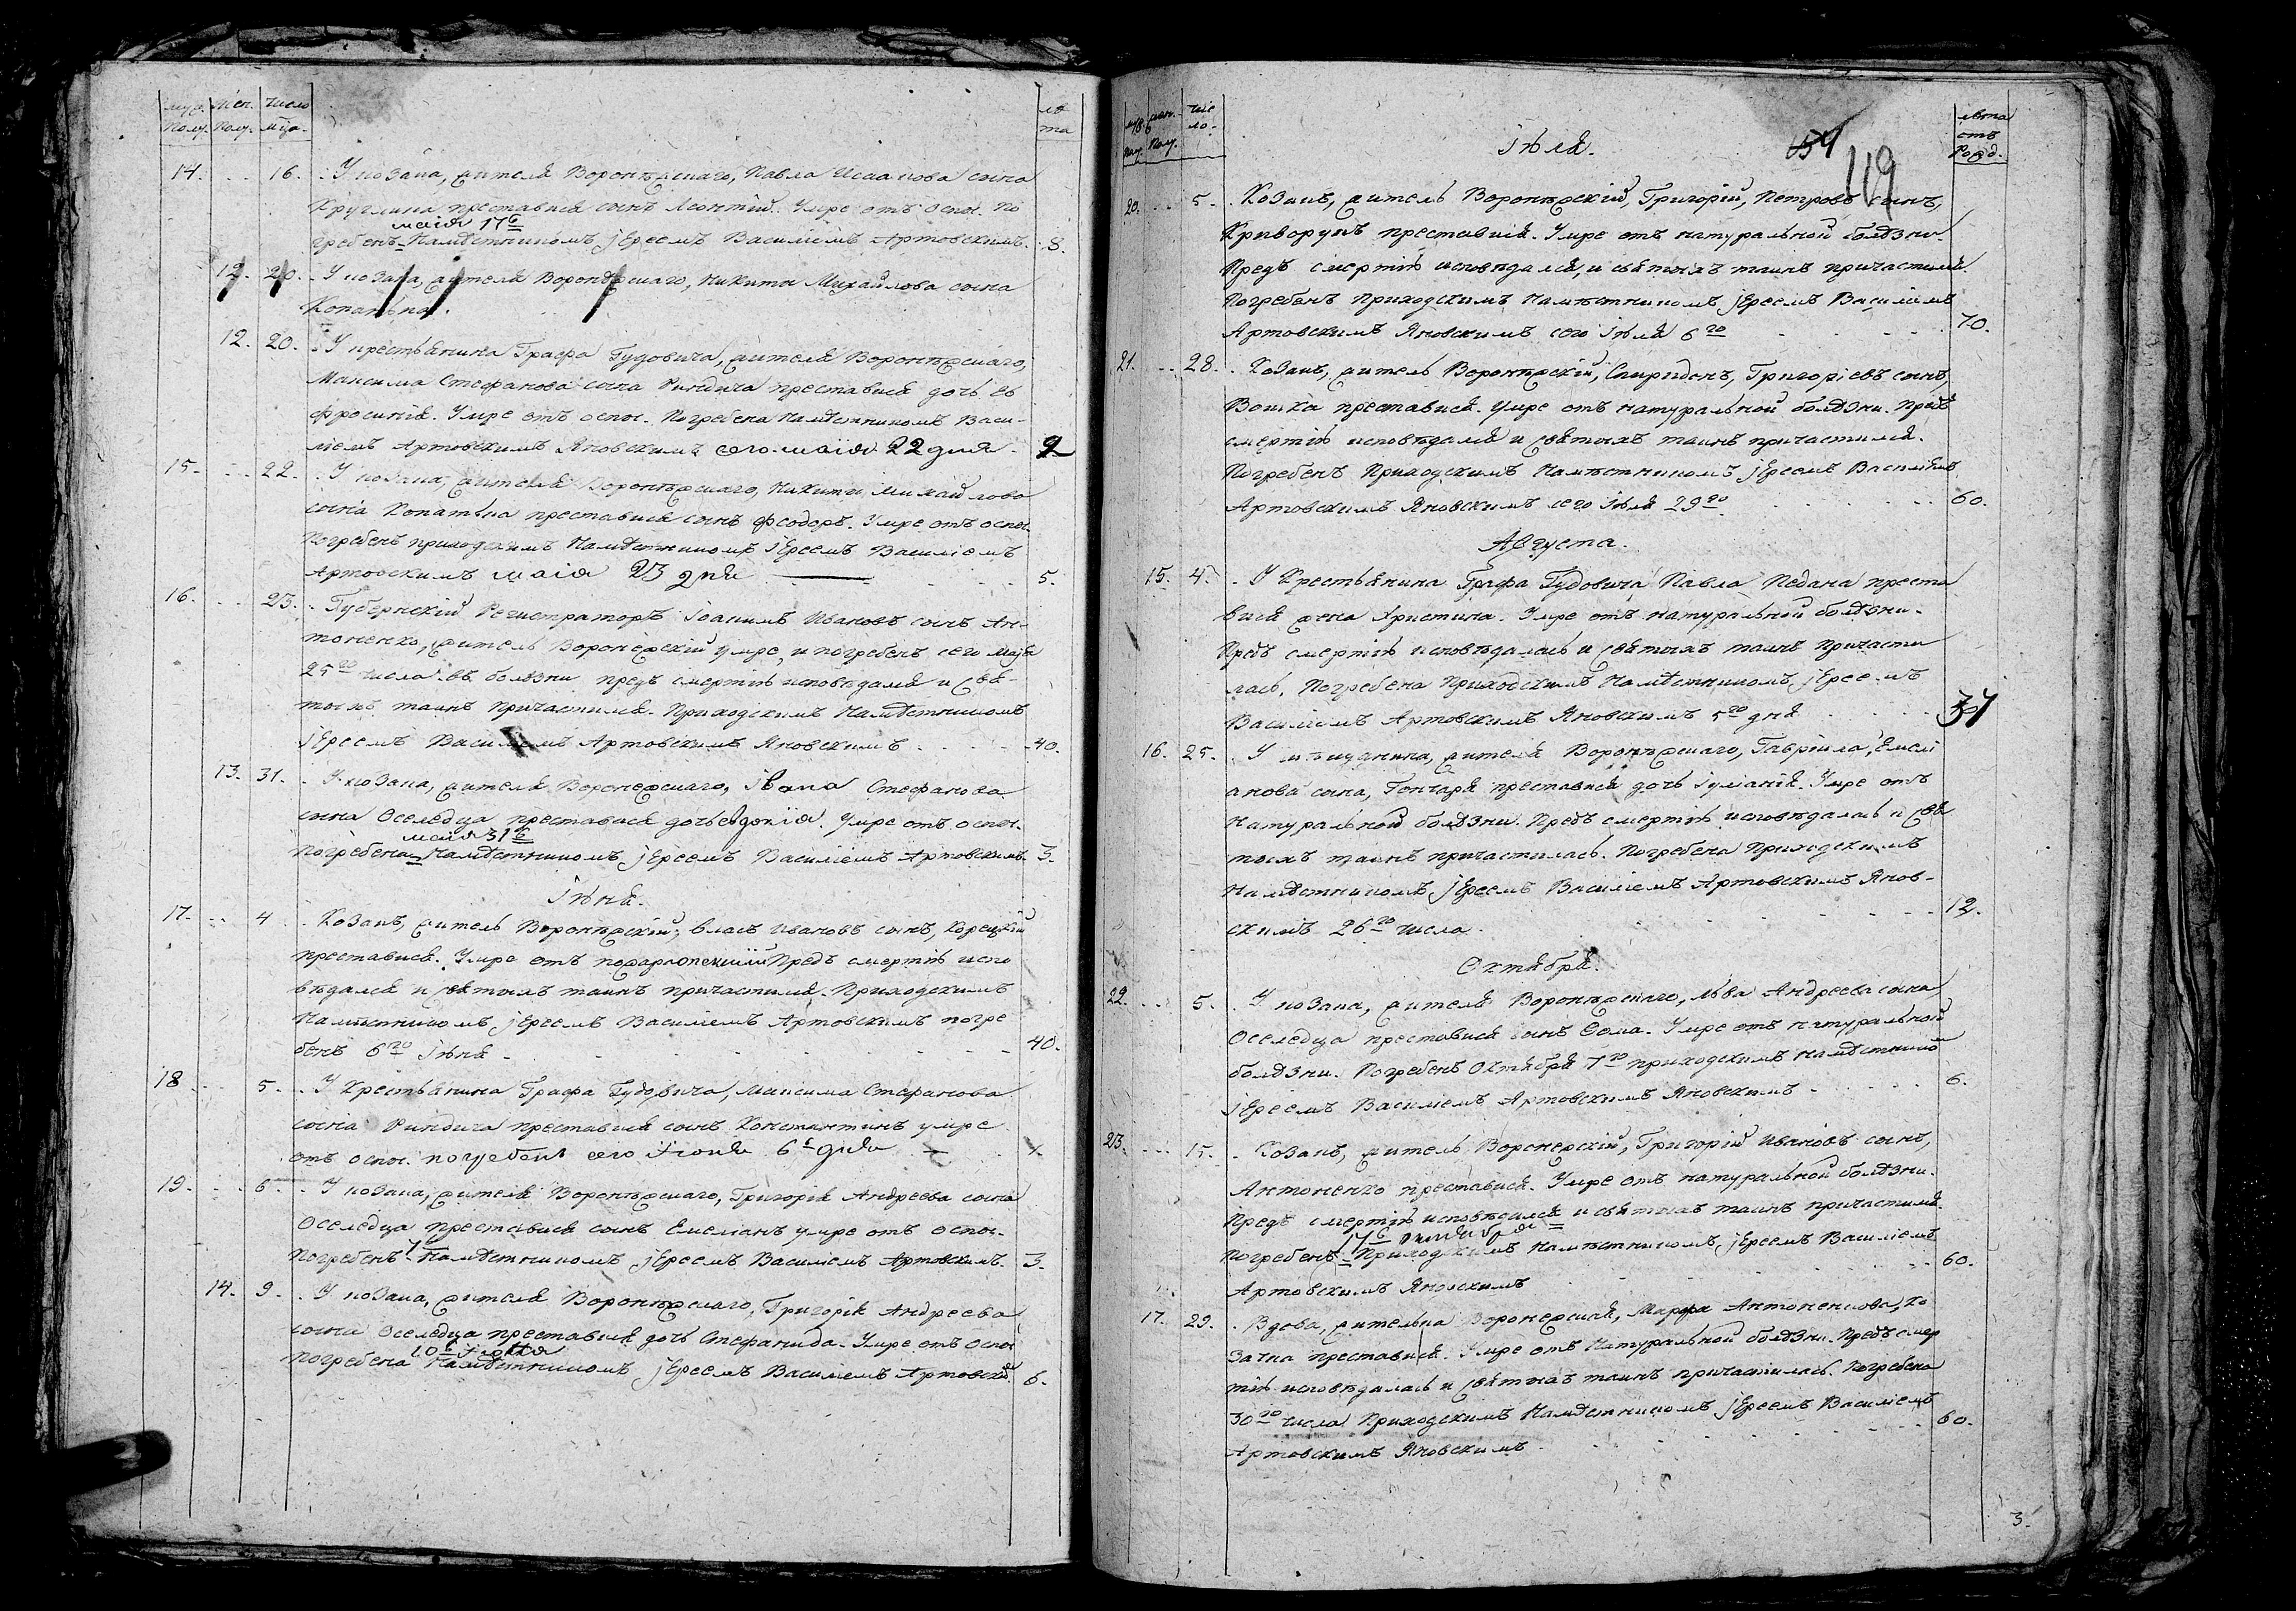 муж. жен. число лѣ
полу. полу. мца. та
14. 16. У козака, жителя Воронѣжскаго, Павла Исаакова сына
Круглика преставися сынъ Леонтій. Умре отъ оспы. По
маія 17
гребенъ Намѣстникомъ Іереемъ Василіемъ Артовскимъ. 8.
12. 20. У козака, жителя Воронѣжскаго, Никиты Михайлова сына
12. 20. У крестьянина Графа Гудовича, жителя Воронѣжскаго,
Максима Стефанова сына Риндича преставися дочь Ев
фросинія. Умре отъ оспы. Погребена Намѣстникомъ Васи-
ліемъ Артовскимъ Яновскимъ сего маія 22 дня 2
15. 22. У козака, жителя Воронѣжскаго, Никиты Михайлова
сына преставися сынъ Феодоръ. Умре отъ оспы.
Погребенъ приходскимъ Намѣстникомъ Іереемъ Василіемъ
Артовскимъ маія 23 дня 5.
16. 23. Губернскій Регистраторъ Іоакимъ Ивановъ сынъ Ан-
тоненко, житель Воронежскій умре, и погребенъ сего Маія
25го числа. въ болѣзни предъ смертію исповѣдался и Свя-
тыхъ таинъ причастился. Приходскимъ Намѣстникомъ
Іереемъ Василіемъ Артовскимъ Яновскимъ 40.
13. 31. У козака, жителя Воронежскаго, Івана Стефанова
сына Оселедца преставися дочь Евдокія. Умре отъ оспы.
маія 31
погребена Намѣстникомъ Іереемъ Василіемъ Артовскимъ. 3.
Іюня.
17. 4. Козакъ, житель Воронѣжскій, Власъ Ивановъ сынъ, Корецкій
преставися. Умре отъ Предъ смертію испо
вѣдался и Святыхъ таинъ причастился. Приходскимъ
Намѣстникомъ Іереемъ Василіемъ Артовскимъ погре
бенъ 6го Іюня 40.
18. 5. У Крестьянина Графа Гудовича, Максима Стефанова
сына Риндича преставися сынъ Константинъ умре
отъ оспы. погребенъ сего Іюня 6 дня
19. 6. У козака, жителя Воронѣжскаго, Григорія Андреева сына
Оселедца преставися сынъ Емеліанъ умре отъ оспы.
Погребенъ 7 Намѣстникомъ Іереемъ Василіемъ Артовскимъ. 3.
14. 9. У козака, жителя Воронѣжскаго, Григорія Андреева
сына Оселедца преставися дочь Стефанида. Умре отъ оспы
10 іюня
погребена Намѣстникомъ Іереемъ Василіемъ Артовским. 6.
муж. жен. чис лѣта
полу. полу. ло. отъ
Рожд.
Іюля. 119
20. 5. Козакъ, житель Воронѣжскій, Григорій, Петровъ сынъ,
Криворукъ преставися. Умре отъ натуральной болѣзни.
Предъ смертію исповѣдался, и святыхъ таинъ причастился.
Погребенъ Приходскимъ Намѣстникомъ Іереемъ Василіемъ
Артовскимъ Яновскимъ сего Іюля 6го 70.
21. 28. Козакъ, житель Воронѣжскій, Спиридонъ, Григоріевъ сынъ,
преставися. Умре отъ натуральной болѣзни. Предъ
смертію исповѣдался и Святыхъ таинъ причастился.
Погребенъ Приходскимъ Намѣстникомъ Іереемъ Василіемъ
Артовскимъ Яновскимъ сего Іюля 29го. 60.
Августа.
15. 4. У Крестьянина Графа Гудовича Павла Педана преста
вися жена Христина. Умре отъ натуральной болѣзни.
Предъ смертію исповѣдалась и Святыхъ таинъ Причасти
лась. Погребена Приходскимъ Намѣстникомъ Іереемъ
Василіемъ Артовскимъ Яновскимъ 5го дня
16. 25. У жителя Воронѣжскаго, Гавріила, Емелі
анова сына, Гончаря преставися дочь Іуліанія. Умре отъ
натуральной болѣзни. Предъ смертію исповѣдалась и Свя
тыхъ таинъ причастилась. Погребена Приходскимъ
Намѣстникомъ Іереемъ Василіемъ Артовскимъ Янов-
скимъ 26го числа. 12.
Октября.
22. 5. У козака, жителя Воронѣжскаго, Льва Андреева сына
Оселедца преставися сынъ Ѳома. Умре отъ натуральной
болѣзни. Погребенъ Октября 7го приходскимъ Намѣстнико
Іереемъ Василіемъ Артовскимъ Яновскимъ 6.
23. 15. Козакъ, житель Воронежскій, Григорій Ивановъ сынъ,
Антоненко преставися. Умре отъ натуральной болѣзни.
Предъ смертію исповѣдался и святыхъ таинъ причастился.
17 октября
Погребенъ Приходскимъ Намѣстникомъ Іереемъ Василіемъ
Артовскимъ Яновскимъ 60.
17. 29. Вдова, жителька Воронежская, Марфа Антоненкова, Ко
зачка преставися. Умре отъ Натуральной болѣзни. Предъ смер
тію исповѣдалась и Святыхъ таинъ причастилась. Погребена
30го числа Приходскимъ Намѣстникомъ Іереемъ Василіемъ
Артовскимъ Яновскимъ 60.
3.